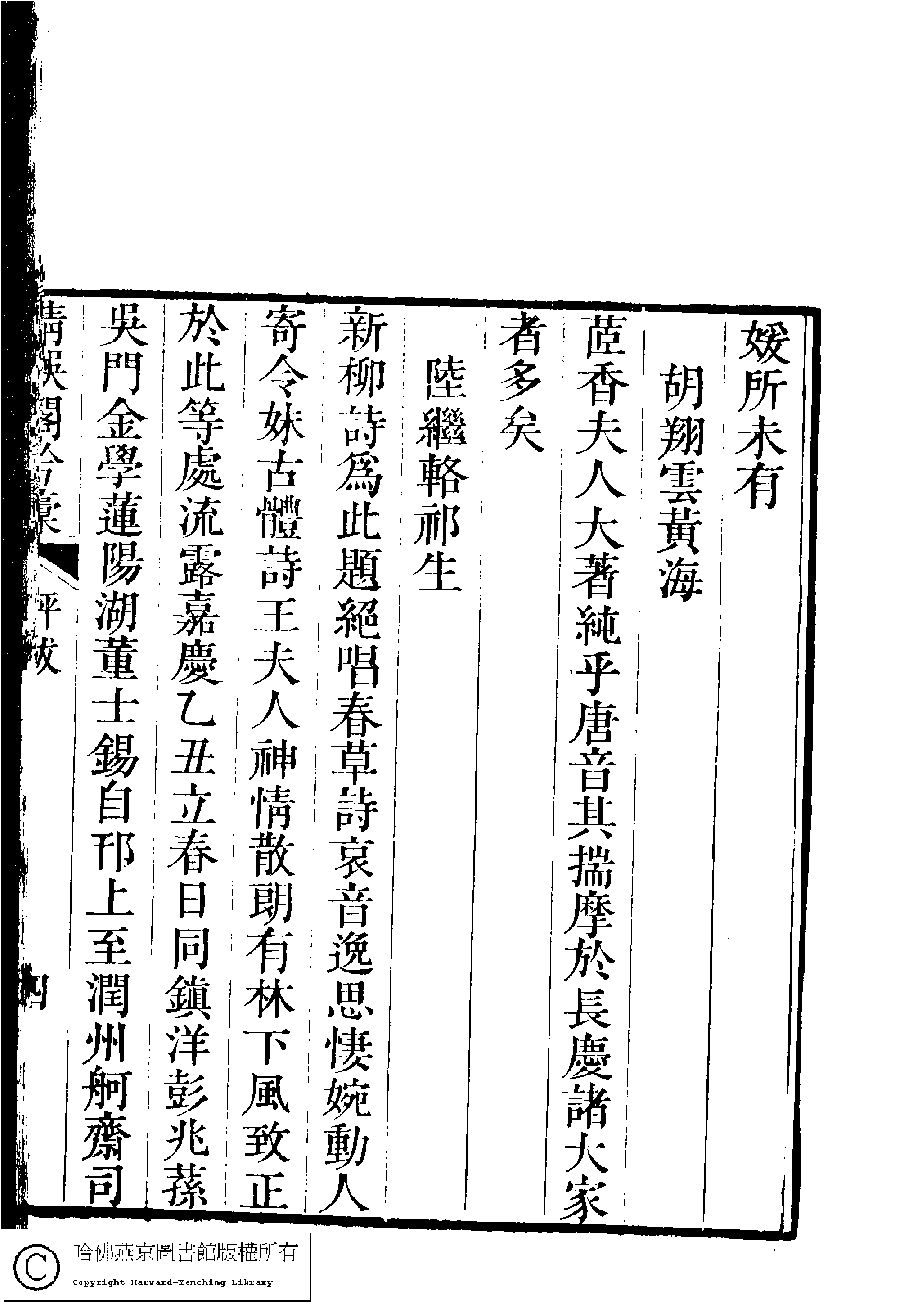 媛所未有
胡翔雲黃海
茝香夫人大著純乎唐音其揣摩於長慶諸大家
者多矣
陸繼輅祁生
新柳詩為此題絕唱春草詩哀音逸思悽婉動人
寄令妹古體詩王夫人神情散朗有林下風致正
於此等處流露嘉慶乙丑立春日同鎮洋彭兆蓀
吳門金學蓮陽湖董士錫自邗上至潤州舸齋司
清娛閣合稾
評跋
四
哈佛燕京圖書館版權所有
Copyright Harvard-Yenching Library